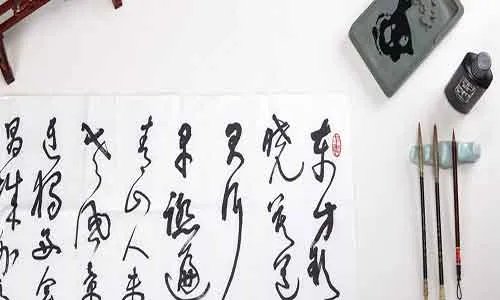 东方欲
晓莫道
君行
早踏遍
青山人未
老风景
边独好会
昌城外